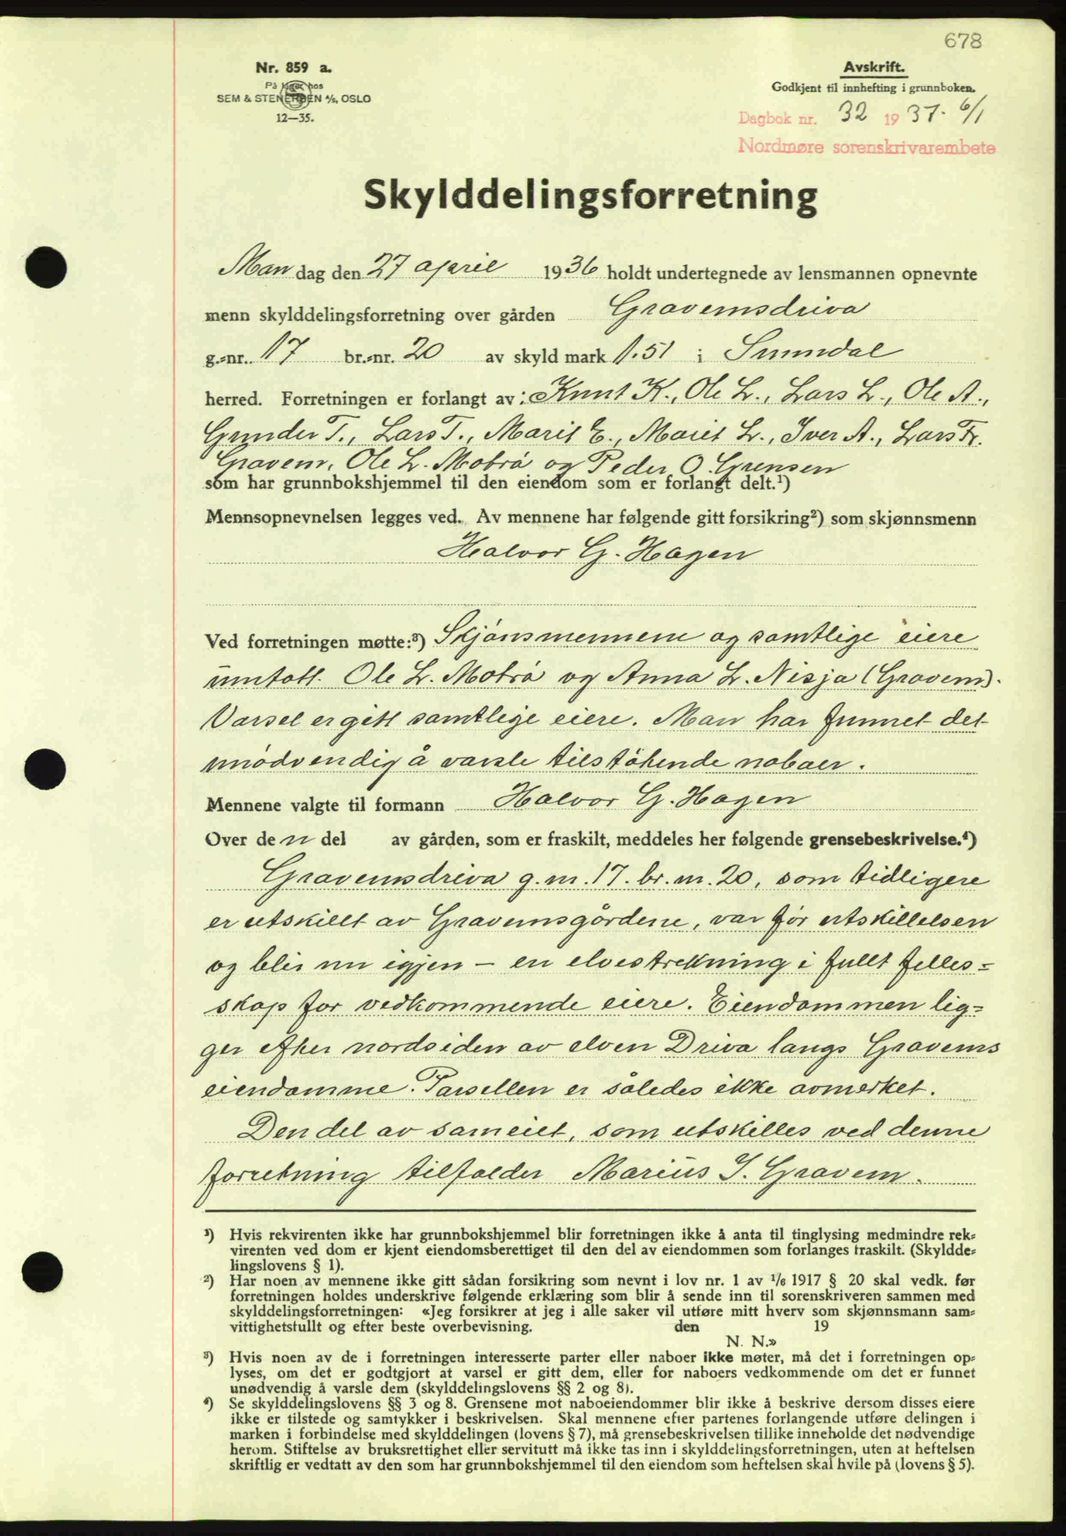 678
Nr. 859 a.
På lager hos
SEM & STENERSEN A/S, OSLO
12—35.
Avskrift.
Godkjent til innhefting i grunnboken.
Dagbok nr. 32 1937. 6/1
Nordmøre sorenskrivarembete
Skylddelingsforretning
Man dag den 27 april 1936 holdt undertegnede av lensmannen opnevnte
menn skylddelingsforretning over gården Gravemsdriva
g.-nr. 17 br.-nr. 20 av skyld mark 1.51 i Sunndal
herred. Forretningen er forlangt av: Knut K., Ole L., Lars L., Ole A.,
Gunder T., Lars T., Marit E., Marit L., Iver A., Lars Fr.
Gravem, Ole L. Mobrå og Peder O. Grensen
som har grunnbokshjemmel til den eiendom som er forlangt delt.¹)
Mennsopnevnelsen legges ved. Av mennene har følgende gitt forsikring²) som skjønnsmenn
Halvor G. Hagen
Ved forretningen møtte:³) Skjönsmennene og samtlige eiere
unntatt Ole L. Mobrå og Anna L. Nisja (Gravem).
Varsel er gitt samtlige eiere. Man har funnet det
unödvendig å varsle tilstötende naboer.
Mennene valgte til formann Halvor G. Hagen
Over de n del av gården, som er fraskilt, meddeles her følgende grensebeskrivelse.⁴)
Gravemsdriva g.nr. 17. br.nr. 20, som tidligere
er utskillt av Gravemsgårdene, var för utskillelsen
og blir nu igjen – en elvestrekning i fullt felles=
skap for vedkommende eiere. Eiendommen lig=
ger efter nordsiden av elven Driva langs Gravems
eiendomme. Parsellen er således ikke avmerket.
Den del av sameiet, som utskilles ved denne
forretning tilfalder Marius I. Gravem.
¹) Hvis rekvirenten ikke har grunnbokshjemmel blir forretningen ikke å anta til tinglysing medmindre rek-
virenten ved dom er kjent eiendomsberettiget til den del av eiendommen som forlanges fraskilt. (Skyldde-
lingslovens § 1).
²) Har noen av mennene ikke gitt sådan forsikring som nevnt i lov nr. 1 av 1/6 1917 § 20 skal vedk. før
forretningen holdes underskrive følgende erklæring som blir å sende inn til sorenskriveren sammen med
skylddelingsforretningen: «Jeg forsikrer at jeg i alle saker vil utføre mitt hverv som skjønnsmann sam-
vittighetsfullt og efter beste overbevisning. den 19
N. N.»
³) Hvis noen av de i forretningen interesserte parter eller naboer ikke møter, må det i forretningen op-
lyses, om det er godtgjort at varsel er gitt dem, eller for naboers vedkommende om det er funnet
unødvendig å varsle dem (skylddelingslovens §§ 2 og 8).
⁴) Se skylddelingslovens §§ 3 og 8. Grensene mot naboeiendommer blir ikke å beskrive dersom disses eiere
ikke er tilstede og samtykker i beskrivelsen. Skal mennene efter partenes forlangende utføre delingen i
marken i forbindelse med skylddelingen (lovens § 7), må grensebeskrivelsen tillike inneholde det nødvendige
herom. Stiftelse av bruksrettighet eller servitutt må ikke tas inn i skylddelingsforretningen, uten at heftelsen
skriftlig er vedtatt av den som har grunnbokshjemmel til den eiendom som heftelsen skal hvile på (lovens § 5).